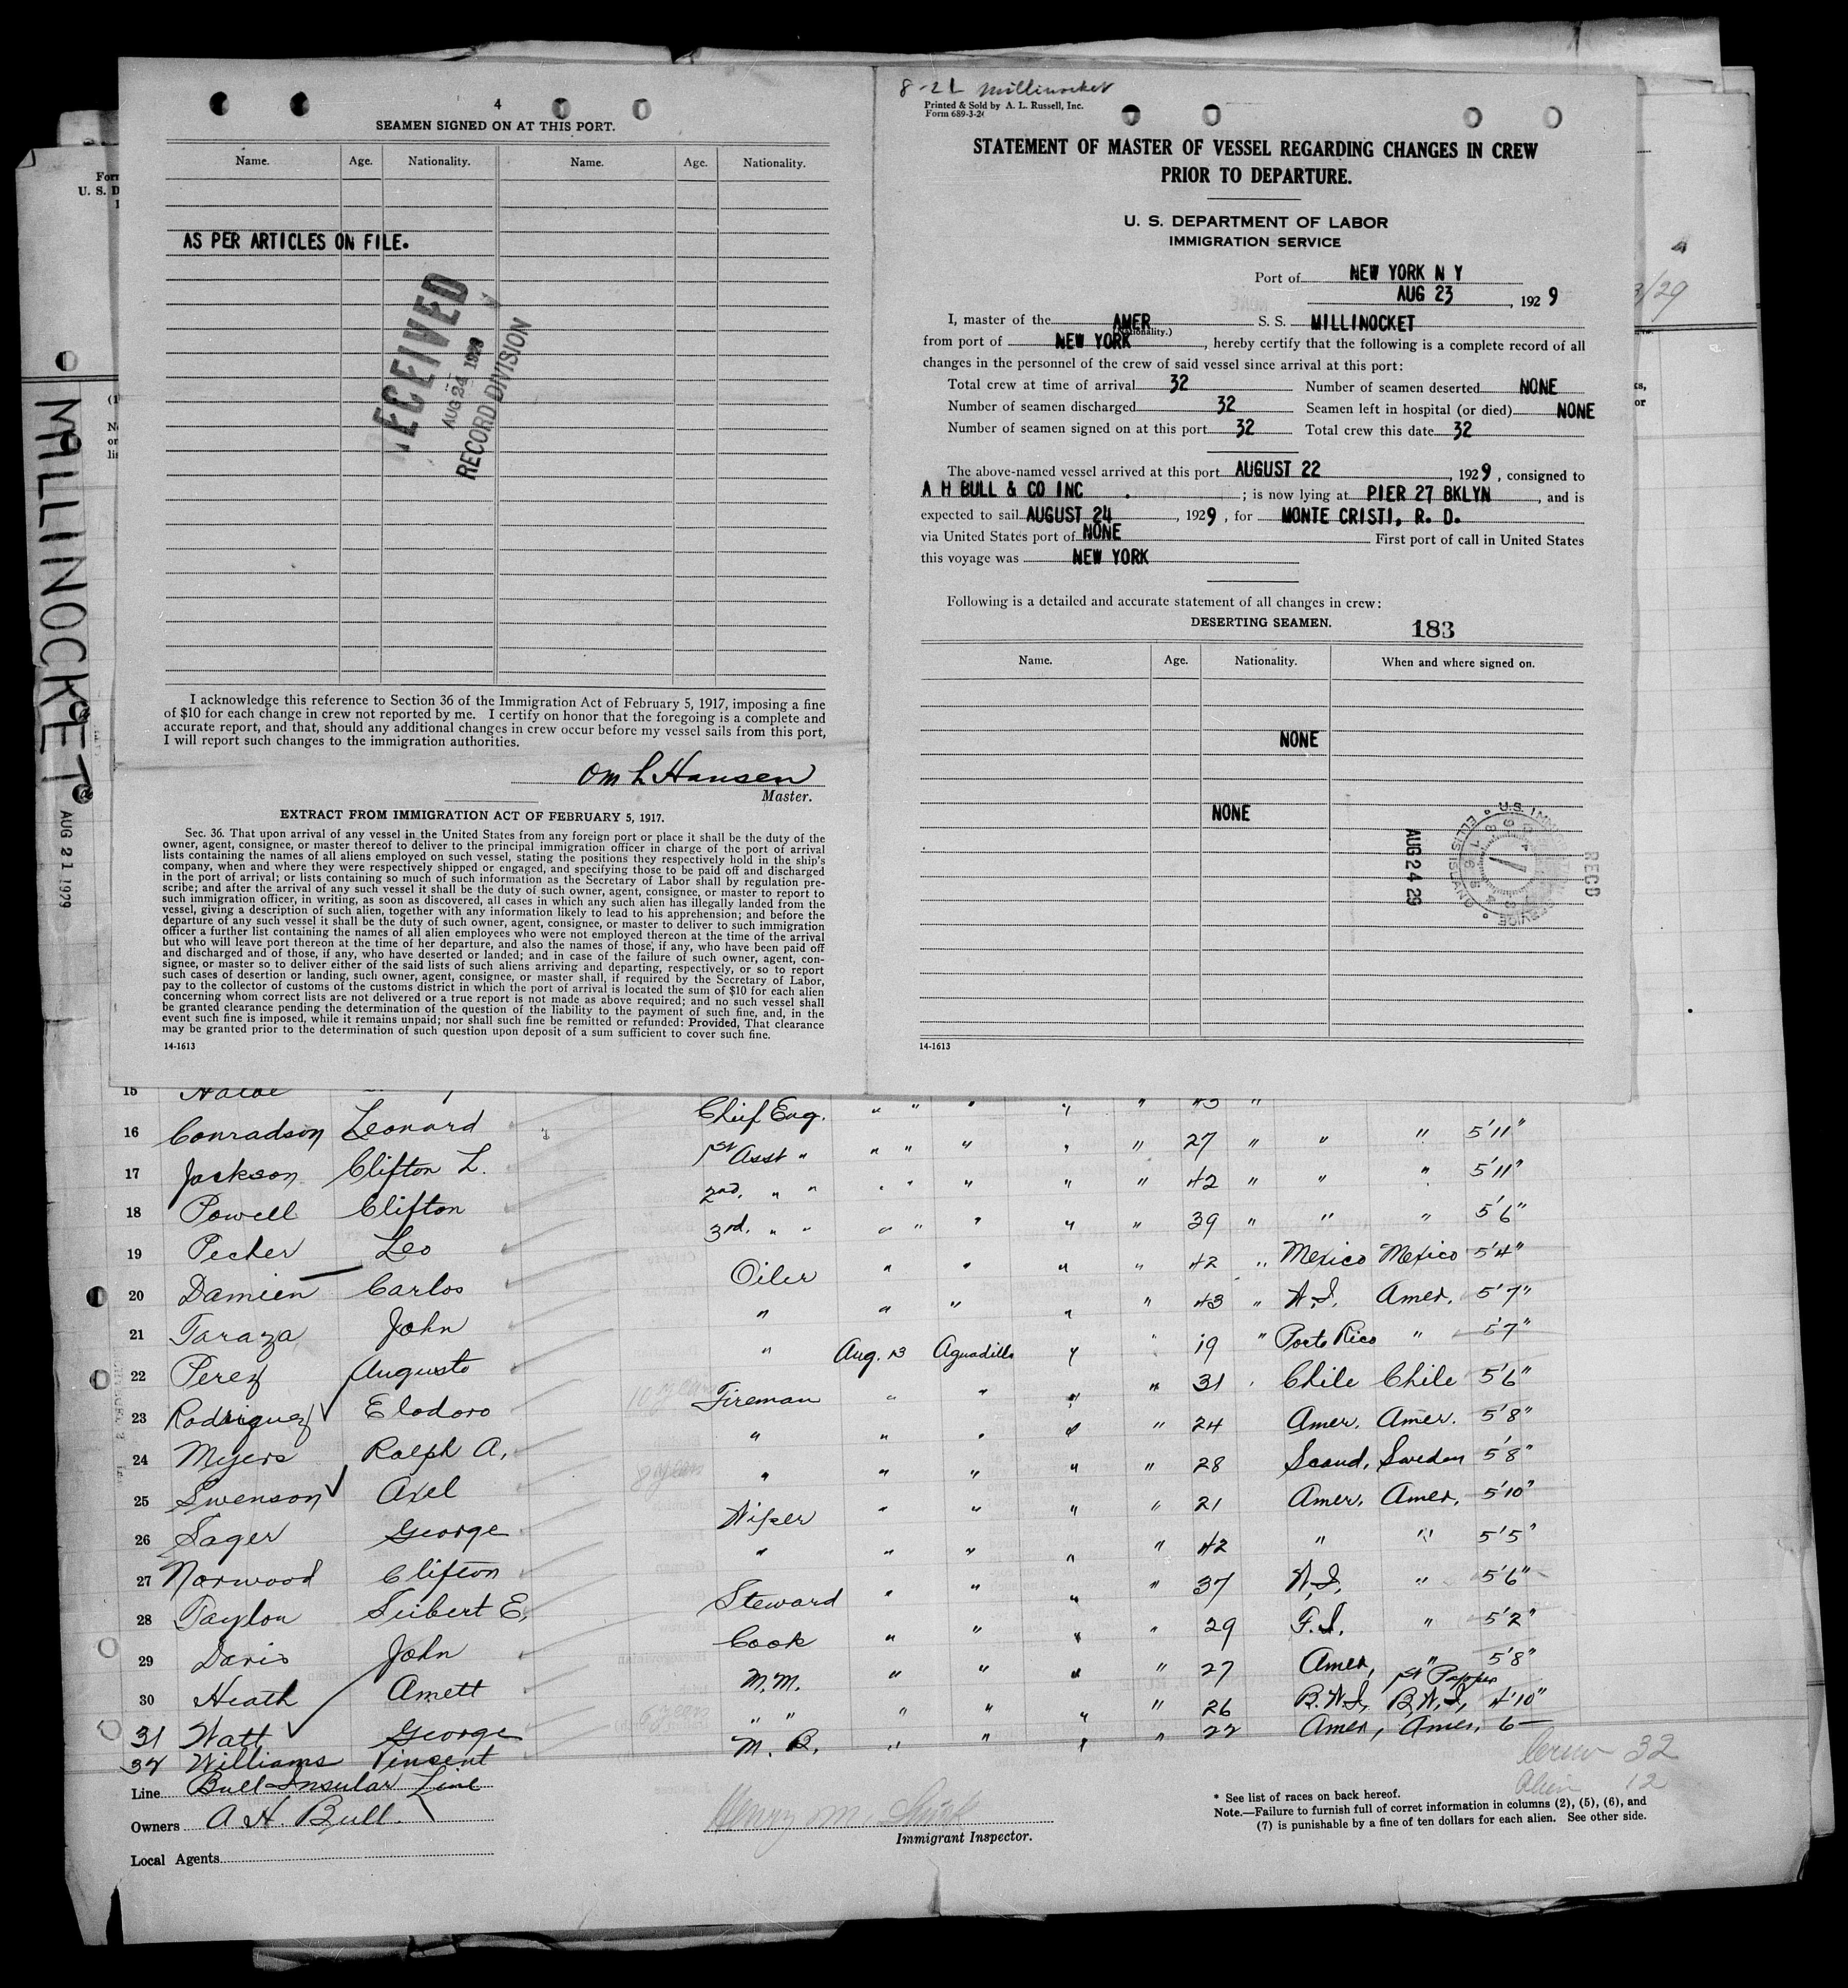 4
SEAMEN SIGNED ON AT THIS PORT.
Name. Age. Nationality. Name. Age. Nationality.
AS PER ARTICLES ON FILE.
RECEIVED
AUG 24 1929
RECORD DIVISION
I acknowledge this reference to Section 36 of the Immigration Act of February 5, 1917, imposing a fine
of $10 for each change in crew not reported by me. I certify on honor that the foregoing is a complete and
accurate report, and that, should any additional changes in crew occur before my vessel sails from this port,
I will report such changes to the immigration authorities.
Hansen
Master.
EXTRACT FROM IMMIGRATION ACT OF FEBRUARY 5, 1917.
Sec. 36. That upon arrival of any vessel in the United States from any foreign port or place it shall be the duty of the
owner, agent, consignee, or master thereof to deliver to the principal immigration officer in charge of the port of arrival
lists containing the names of all aliens employed on such vessel, stating the positions they respectively hold in the ship's
company, when and where they were respectively shipped or engaged, and specifying those to be paid off and discharged
in the port of arrival; or lists containing so much of such information as the Secretary of Labor shall by regulation pre-
scribe; and after the arrival of any such vessel it shall be the duty of such owner, agent, consignee, or master to report to
such immigration officer, in writing, as soon as discovered, all cases in which any such alien has illegally landed from the
vessel, giving a description of such alien, together with any information likely to lead to his apprehension; and before the
departure of any such vessel it shall be the duty of such owner, agent, consignee, or master to deliver to such immigration
officer a further list containing the names of all alien employees who were not employed thereon at the time of the arrival
but who will leave port thereon at the time of her departure, and also the names of those, if any, who have been paid off
and discharged and of those, if any, who have deserted or landed; and in case of the failure of such owner, agent, con-
signee, or master so to deliver either of the said lists of such aliens arriving and departing, respectively, or so to report
such cases of desertion or landing, such owner, agent, consignee, or master shall, if required by the Secretary of Labor,
pay to the collector of customs of the customs district in which the port of arrival is located the sum of $10 for each alien
concerning whom correct lists are not delivered or a true report is not made as above required; and no such vessel shall
be granted clearance pending the determination of the question of the liability to the payment of such fine, and, in the
event such fine is imposed, while it remains unpaid; nor shall such fine be remitted or refunded: Provided, That clearance
may be granted prior to the determination of such question upon deposit of a sum sufficient to cover such fine.
14-1613
8-21 Millinocket
Printed & Sold by A. L. Russell, Inc.
Form 689-3-2
STATEMENT OF MASTER OF VESSEL REGARDING CHANGES IN CREW
PRIOR TO DEPARTURE.
U. S. DEPARTMENT OF LABOR
IMMIGRATION SERVICE
Port of NEW YORK N Y
AUG 23, 1929
I, master of the AMER S. S. MILLINOCKET
(Nationality.)
from port of NEW YORK, hereby certify that the following is a complete record of all
changes in the personnel of the crew of said vessel since arrival at this port:
Total crew at time of arrival 32 Number of seamen deserted NONE
Number of seamen discharged 32 Seamen left in hospital (or died) NONE
Number of seamen signed on at this port 32 Total crew this date 32
The above-named vessel arrived at this port AUGUST 22, 1929, consigned to
A H BULL & CO INC. ; is now lying at PIER 27 BKLYN, and is
expected to sail AUGUST 24, 1929, for MONTE CRISTI, R. D.
via United States port of NONE First port of call in United States
this voyage was NEW YORK
Following is a detailed and accurate statement of all changes in crew:
DESERTING SEAMEN. 183
Name. Age. Nationality. When and where signed on.
NONE
NONE
AUG 24 29
U.S. IMMIGRATION SERVICE ELLIS ISLAND
RECD
14-1613
3/29
MILLINOCKET
AUG 21 1929
15 Chief Eng. " " " " " 43 "
16 Conradson Leonard 1st Asst " " " " " " 27 " " " 5'11"
17 Jackson Clifton L. 2nd. " " " " " " " 42 " " " 5'11"
18 Powell Clifton 3rd. " " " " " " " 39 " " " 5'6"
19 Pecher Leo Oiler " " " " 42 " Mexico Mexico 5'4"
20 Damien Carlos " " " " " 43 " W.I. Amer. 5'7"
21 Taraza John " Aug. 13 Aguadilla " " 19 " Porto Rico " 5'7"
22 Perez Augusto Fireman " " " " 31 " Chile Chile 5'6"
23 Rodriguez Elodoro 10 years " " " " " 24 Amer. Amer. 5'8"
24 Myers Ralph A. " " " " " 28 Scand. Sweden 5'8"
25 Swenson Axel 8 years Wiper " " " " 21 Amer. Amer. 5'10"
26 Sager George " " " " " 42 " " 5'5"
27 Norwood Clifton Steward " " " " 37 W.I. " 5'6"
28 Taylor Seibert E. Cook " " " " 29 F.I. " 5'2"
29 Davis John M.M. " " " " 27 Amer. " 5'8"
30 Heath Amett " " " " " " 26 B.W.I. B.W.I. 4'10"
1st Papers
31 Watt George M. B. " " " " 22 Amer, Amer, 6—
32 Williams Vincent
Crew 32
Alien 12
Line Bull Insular Line
Owners A. H. Bull.
Local Agents
Henry M.
Immigrant Inspector.
* See list of races on back hereof.
Note.—Failure to furnish full of corret information in columns (2), (5), (6), and
(7) is punishable by a fine of ten dollars for each alien. See other side.